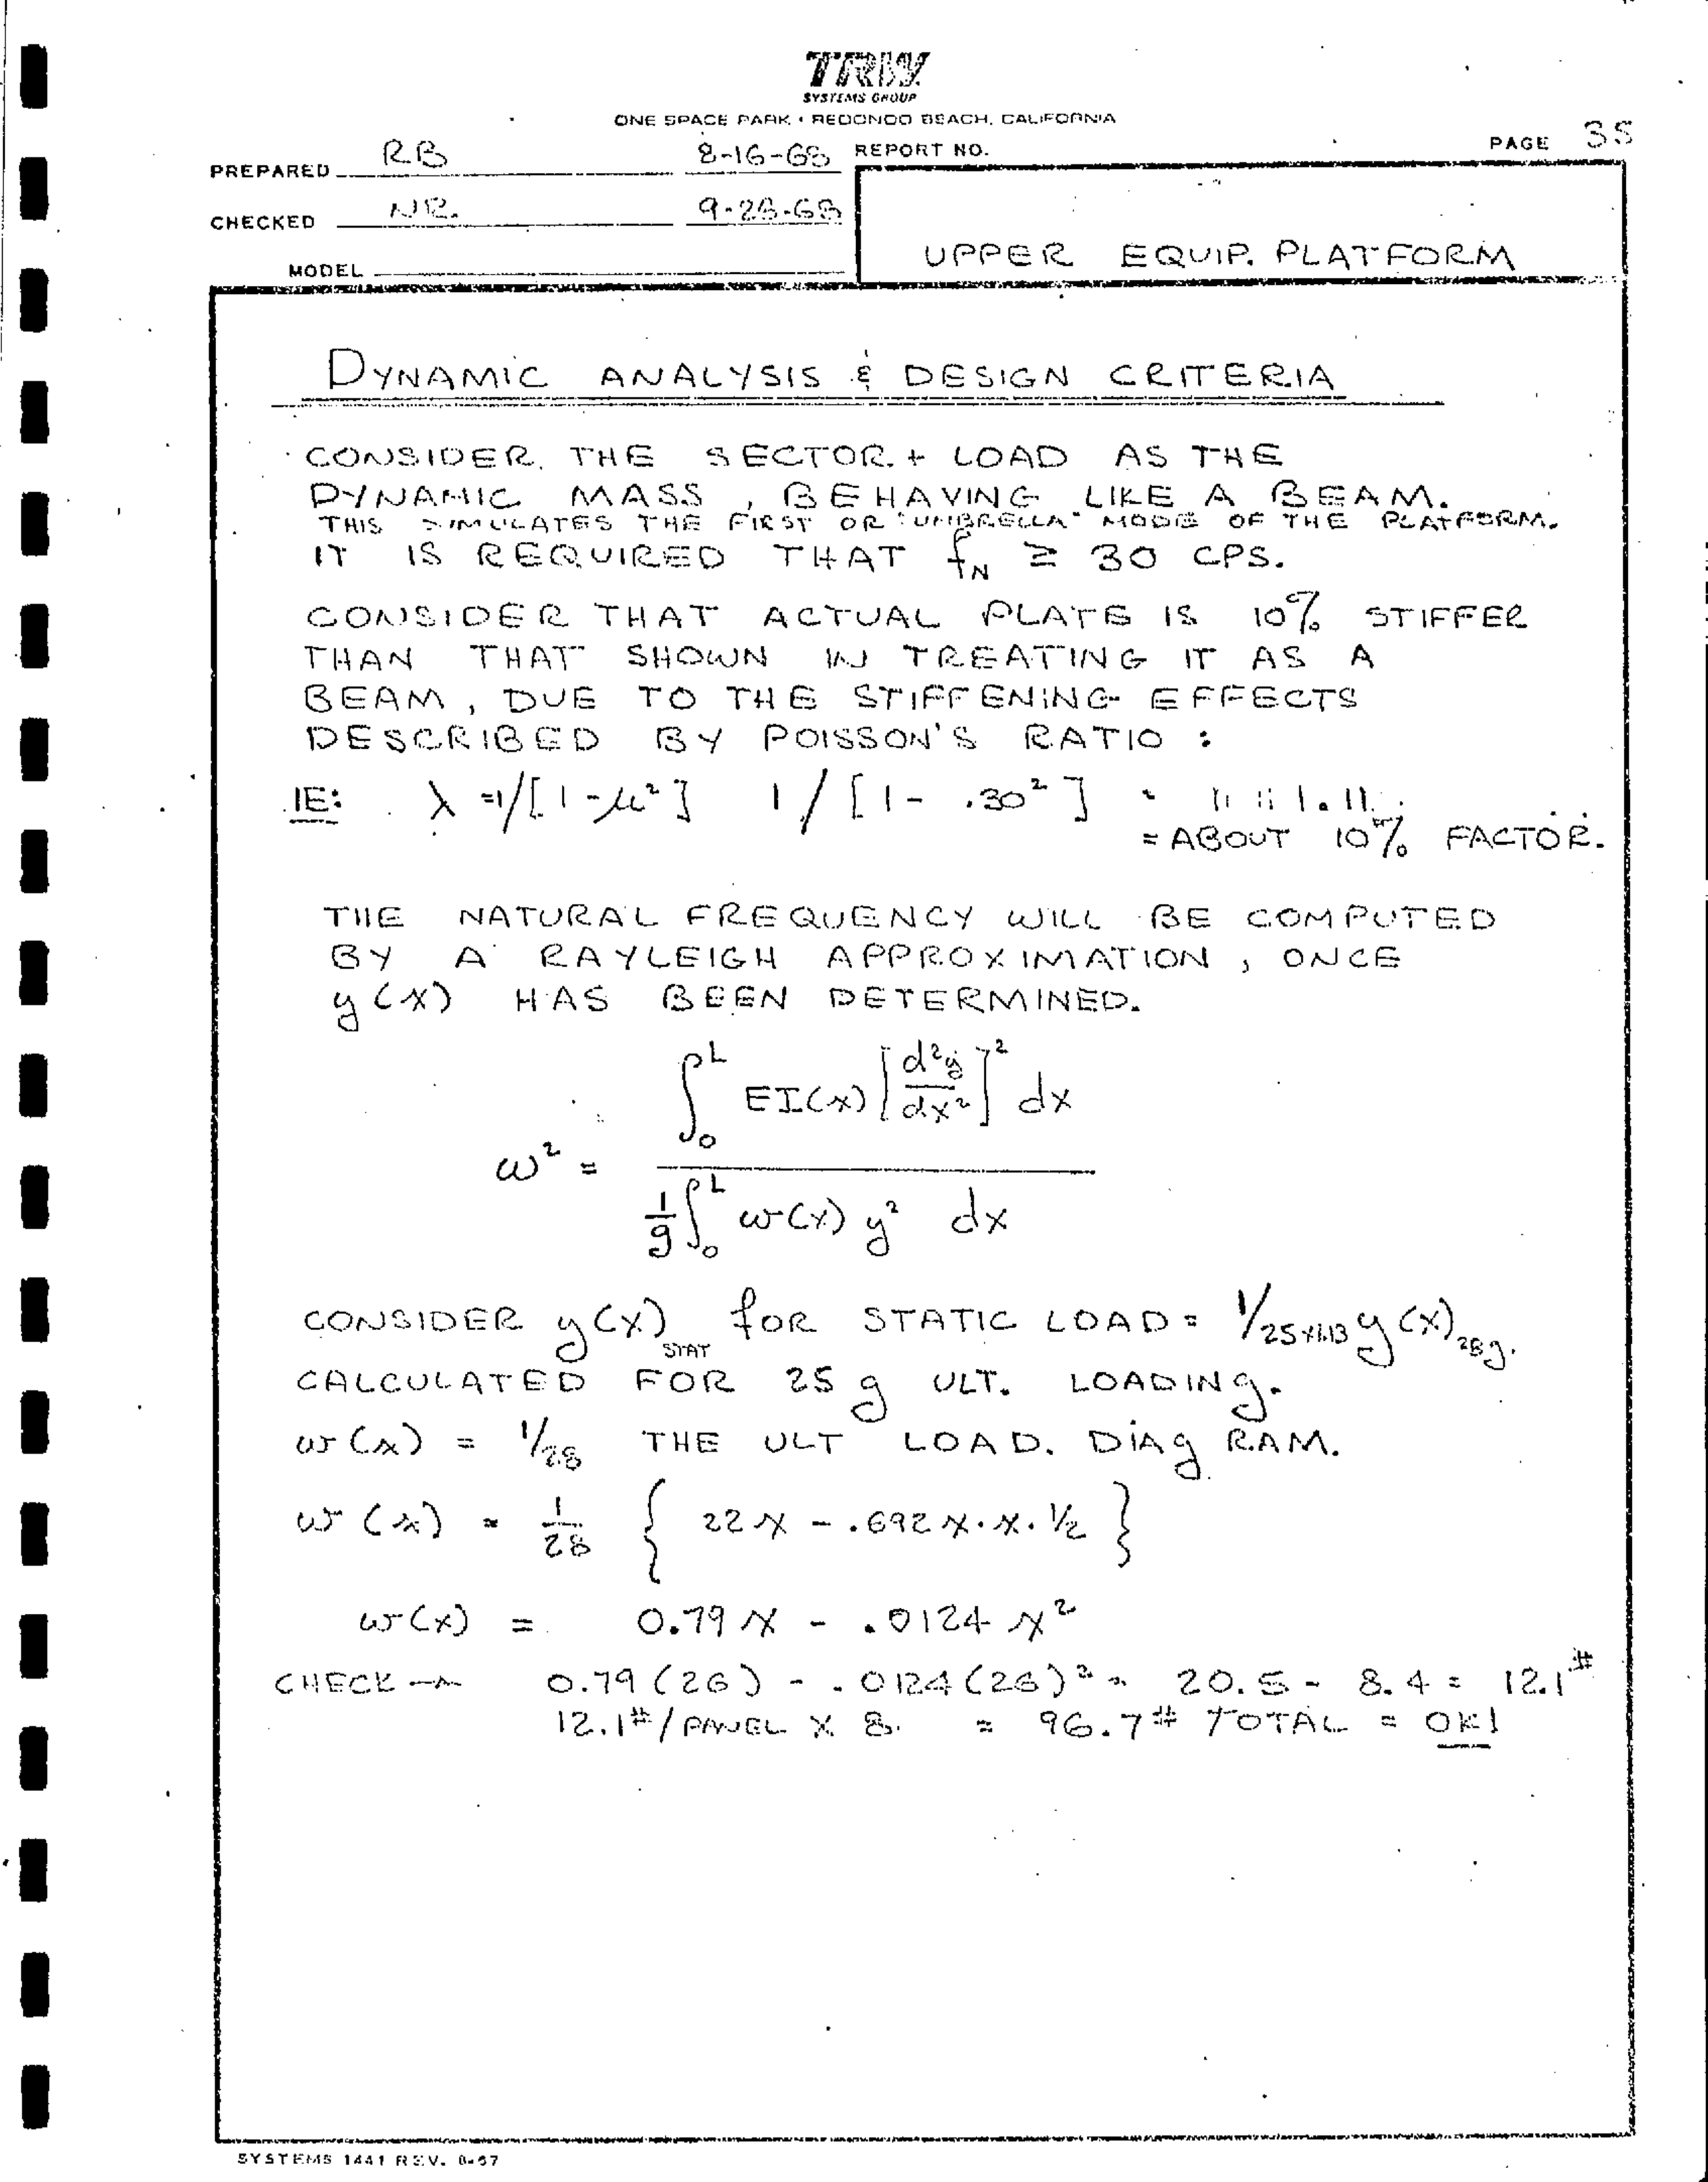 TRW
SYSTEMS GROUP
ONE SPACE PARK • REDONDO BEACH, CALIFORNIA
PAGE 35
PREPARED RB 8-16-68 REPORT NO.
CHECKED NR. 9-28-68
MODEL
UPPER EQUIP. PLATFORM
DYNAMIC ANALYSIS & DESIGN CRITERIA
CONSIDER THE SECTOR + LOAD AS THE
DYNAMIC MASS, BEHAVING LIKE A BEAM.
THIS SIMULATES THE FIRST OR "UMBRELLA" MODE OF THE PLATFORM.
IT IS REQUIRED THAT fN ≥ 30 CPS.
CONSIDER THAT ACTUAL PLATE IS 10% STIFFER
THAN THAT SHOWN IN TREATING IT AS A
BEAM, DUE TO THE STIFFENING EFFECTS
DESCRIBED BY POISSON'S RATIO :
IE: λ = 1/[1-μ²] 1/[1- .30²] = 1.11
= ABOUT 10% FACTOR.
THE NATURAL FREQUENCY WILL BE COMPUTED
BY A RAYLEIGH APPROXIMATION, ONCE
y(x) HAS BEEN DETERMINED.
ω² = ∫₀ᴸ EI(x) [d²y/dx²]² dx / (1/g ∫₀ᴸ w(x) y² dx)
CONSIDER y(x)STAT for STATIC LOAD = 1/25x1.13 y(x)28g.
CALCULATED FOR 25 g ULT. LOADING.
w(x) = 1/28 THE ULT LOAD. DIAGRAM.
w(x) = 1/28 { 22x - .692x·x·1/2 }
w(x) = 0.79x - .0124x²
CHECK → 0.79(26) - .0124(26)² = 20.5 - 8.4 = 12.1#
12.1#/PANEL X 8. = 96.7# TOTAL = OK!
SYSTEMS 1441 REV. 8-67